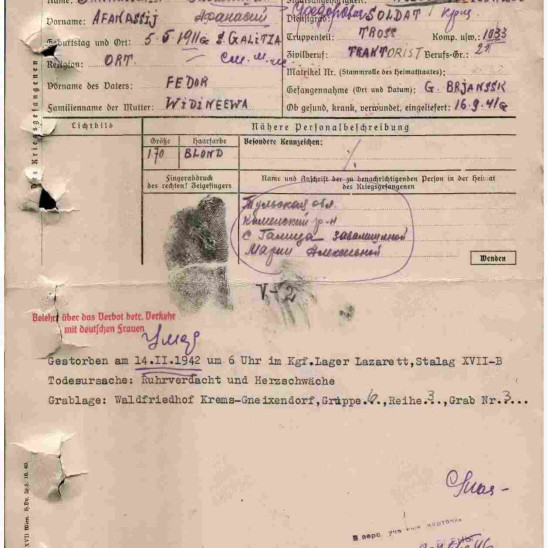 Vorname: AFANASSIJ Афанасий Федорович
Dienstgrad: SOLDAT
Geburtstag und Ort: 5.5 1911 S. GALITZA
Truppenteil: TROSS Komp. usw.: 1033
Religion: ORT.
Zivilberuf: TRAKTORIST Berufs-Gr.: 21
Matrikel Nr. (Stammrolle des Heimatstaates)
Vorname des Vaters: FEDOR
Gefangennahme (Ort und Datum): G. BRJANSSK
Familienname der Mutter: WIDINEEWA
Ob gesund, krank, verwundet, eingeliefert: 16.9.41
Des Kriegsgefangenen
Lichtbild
Nähere Personalbeschreibung
Größe Haarfarbe Besondere Kennzeichen:
170 BLOND
Fingerabdruck
des rechten! Zeigefingers
Name und Anschrift der zu benachrichtigenden Person in der Heimat
des Kriegsgefangenen
Тульская обл.
Каменский р-н
с Галица Завалишиной
Марии Алексеевной
Wenden
V-2
Belehrt über das Verbot betr. Verkehr
mit deutschen Frauen
Gestorben am 14.II.1942 um 6 Uhr im Kgf.Lager Lazarett,Stalag XVII-B
Todesursache: Ruhrverdacht und Herzschwäche
Grablage: Waldfriedhof Krems-Gneixendorf,Grüppe.6.,Reihe.3.,Grab Nr.3...
XVII Wien.